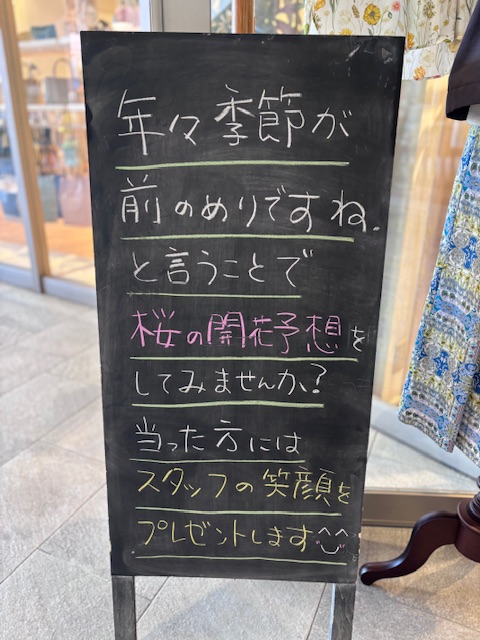 年々季節が
前のめりですね.
と言うことで
桜の開花予想を
してみませんか?
当った方には
スタッフの笑顔を
プレゼントします^^